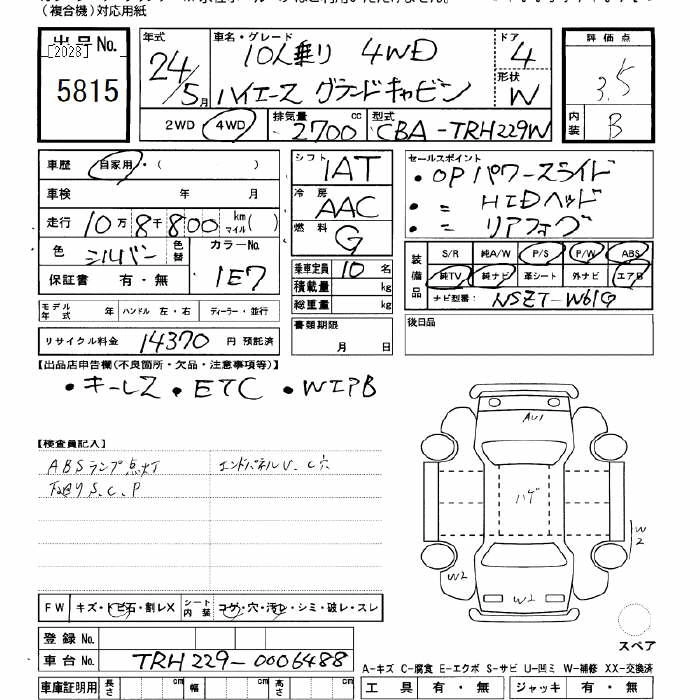 (複合機)対応用紙
出品No.
[2028]
5815
年式
24/5月
車名・グレード
10人乗り 4WD
ハイエース グランドキャビン
ドア
4
形状
W
2WD 4WD
排気量 2700 cc
型式 CBA-TRH229W
評価点
3.5
内装
B
車歴 自家用・( )
車検 年 月
走行 10万8千800 km マイル( )
色 シルバー 色替
カラーNo.
1E7
保証書 有・無
シフト
IAT
冷房
AAC
燃料
G
乗車定員 10 名
積載量 kg
総重量 kg
書類期限
月 日
セールスポイント
・OPパワースライド
・〃 HIDヘッド
・〃 リアフォグ
装備品
S/R 純A/W P/S P/W ABS
純TV 純ナビ 革シート 外ナビ エアB
ナビ型番: NSZT-W61G
後日品
モデル年式 年 ハンドル 左・右 ディーラー・並行
リサイクル料金 14370 円 預託済
【出品店申告欄(不良箇所・欠品・注意事項等)】
・キーレス ・ETC ・WエアB
【検査員記入】
ABSランプ点灯
下廻りS、C、P
エンドパネルU、C穴
AU1
ハゲ
W2
W2
W2
FW キズ・トビ石・割レX
シート内装 コゲ・穴・汚レ・シミ・破レ・スレ
スペア
登録No.
車台No. TRH229-0006488
A-キズ C-腐食 E-エクボ S-サビ U-凹ミ W-補修 XX-交換済
車庫証明用 長さ cm 幅 cm 高さ cm
工具 有・無 ジャッキ 有・無